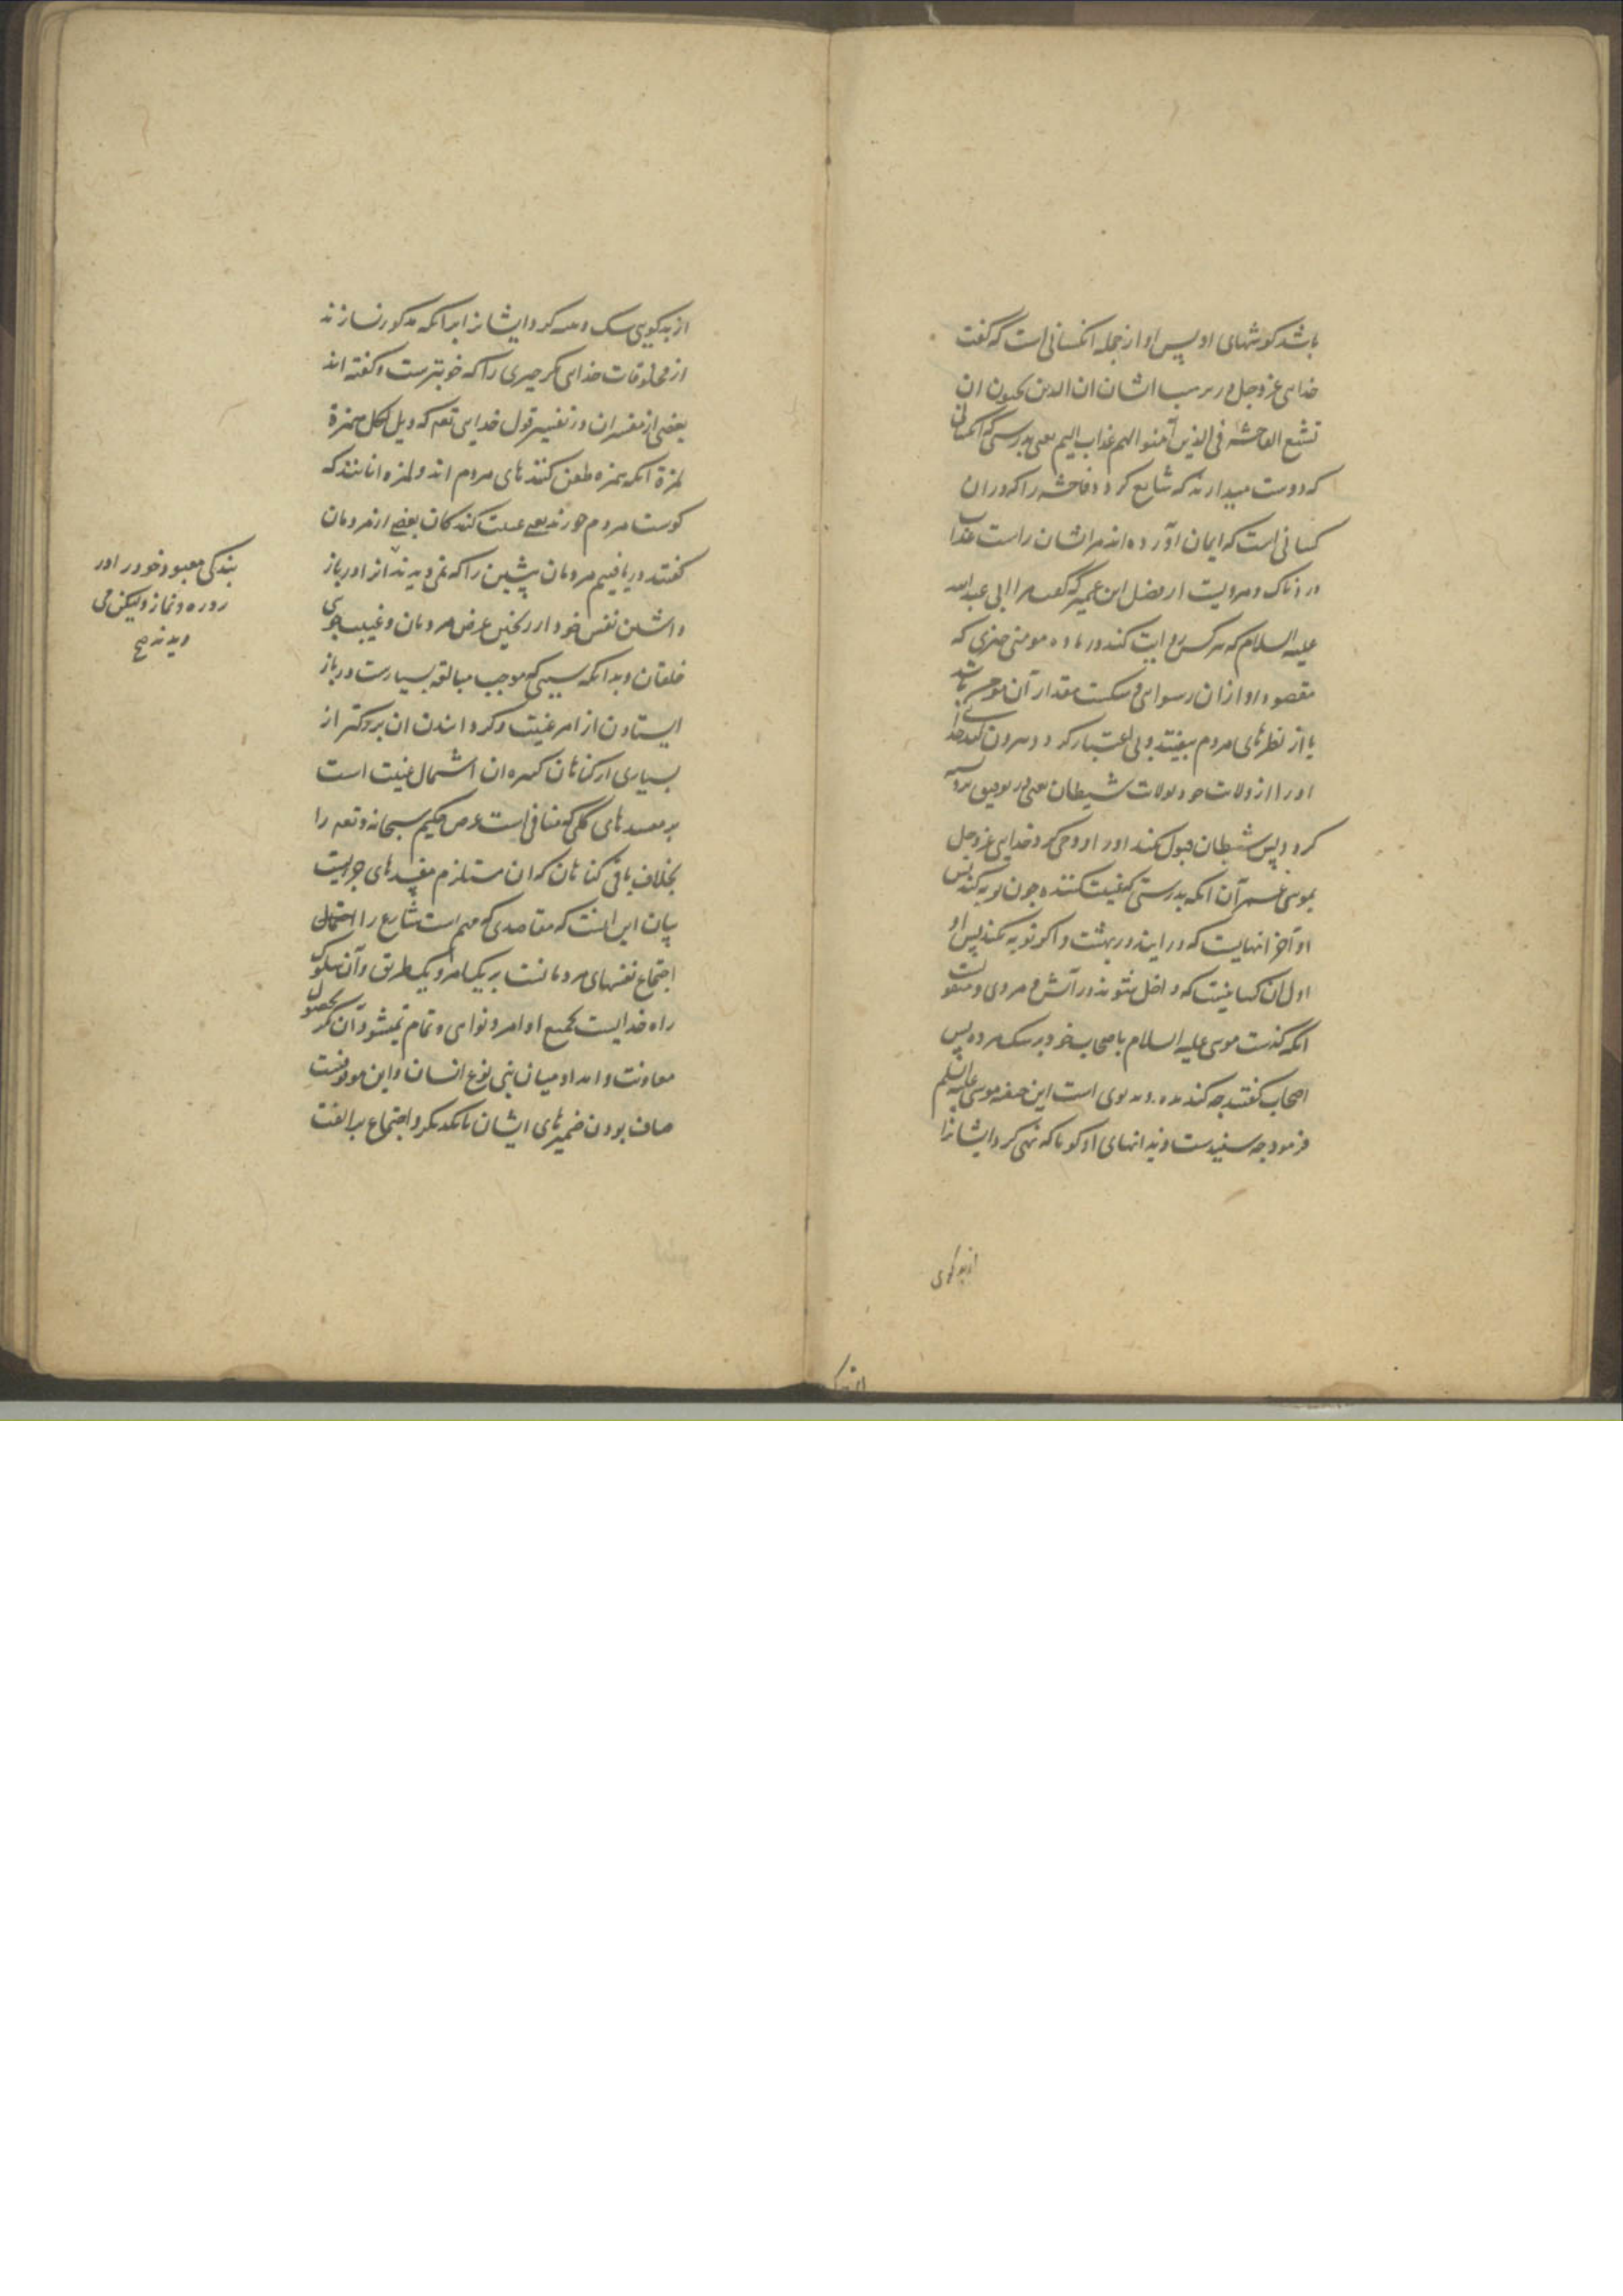 باشد گوشهای او پس او از جمله انکسانی است که گفت
خدای عزوجل در سبب ایشان ان الذین یحبون ان
تشیع الفاحشة فی الذین آمنوا لهم عذاب الیم یعنی بدرستی که آنکسانی
که دوست میدارند که شایع کردد فاحشه را که در ان
کسانی است که ایمان آورده اند مر ایشان راست عذاب
دردناک و مرویست از مفضل ابن عمر که گفت مرا ابی عبدالله
علیه السلام که هر کس روایت کند در ماده مومنی چیزی که
مقصود او از ان رسوایی و شکست مقدار آن مومن باشد
یا از نظرهای مردم بیفتد و بی اعتبار کردد بیرون کند خدای
او را از ولایت خود بولایت شیطان یعنی
کردد پس شیطان قبول نکند او را و وحی کرد خدای عزوجل
بموسی بن عمران آنکه بدرستی که غیبت کننده چون توبه کند پس
او آخر انهاییست که در ایند در بهشت و اکر توبه نکند پس او
اول ان کسانیست که داخل شوند در آتش و مروی و منقولست
انکه گذشت موسی علیه السلام باصحاب خود بر سک مرده پس
اصحاب گفتند چه کنده بوی است این جیفه موسی علیه السلم
فرمود چه سفیدست دندانهای او کویا که نهی کرد ایشانرا
از بد کوی
از بدکویی سک و تنبیه کرد ایشانرا برانکه مذکور نسازند
از مخلوقات خدای مکر چیزی را که خوبترست و گفته اند
بعضی از مفسران در تفسیر قول خدای تعه که ویل لکل همزة
لمزة انکه همزه طعن کنندهای مردم اند و لمزه انانند که
کوشت مردم خورند یعنی غیبت کنندکان بعضی از مردمان
گفتند دریافتیم مردمان پیشین را که نمی دیدند انرا در باز
داشتن نفس خود از ریختن عرض مردمان و غیبت جوی
خلقان و بدانکه سببی که موجب مبالغه بسیارست در باز
ایستادن از امر غیبت و کردانیدن ان بزرکتر از
بسیاری از کناهان کبیره ان اشتمال غیبت است
بر مفسدهای کلی که منافی است غرض حکیم سبحانه و تعه را
بخلاف باقی کناهان که ان مستلزم مفسدهای جزییست
بیان این انست که مقاصدی که مهم است شارع را
اجتماع نفسهای مردمانست بر یک امر و یک طریق و آن سلوک
راه خدایست بجمیع اوامر و نواهی و تمام نمیشود آن مکر بحصول
معاونت و امداد میان بنی نوع انسان و این موقوفست
صاف بودن ضمیرهای ایشان با یکدیکر و اجتماع بر الفت
بندکی معبود خود را در
روزه و نماز و لیکن می
دیدند صح